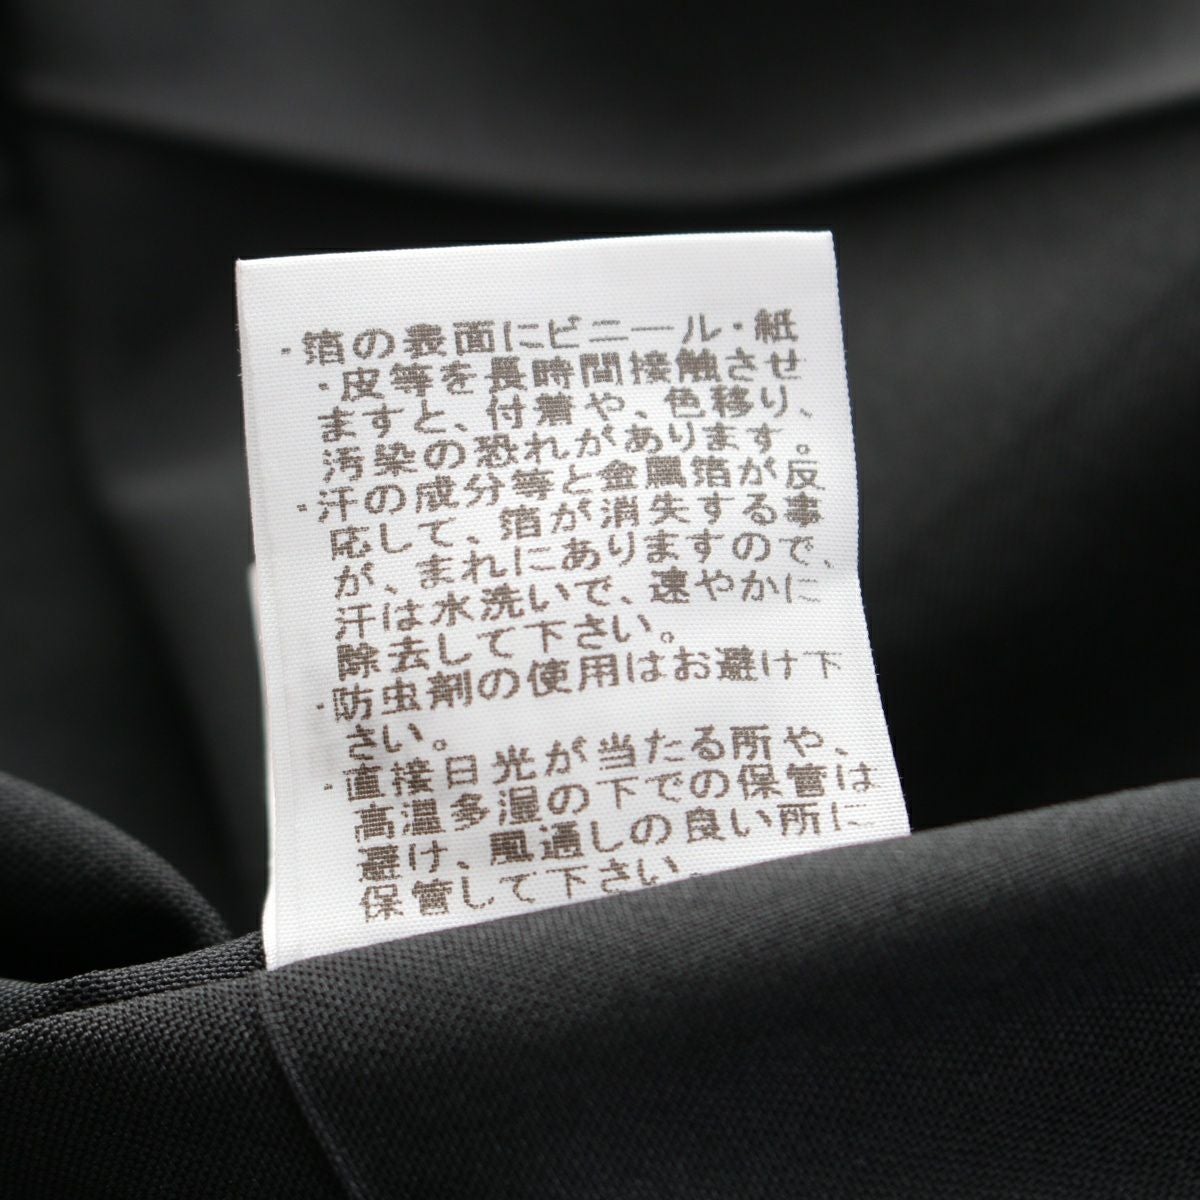 ・箔の表面にビニール・紙
・皮等を長時間接触させ
ますと、付着や、色移り、
汚染の恐れがあります。
・汗の成分等と金属箔が反
応して、箔が消失する事
が、まれにありますので、
汗は水洗いで、速やかに
除去して下さい。
・防虫剤の使用はお避け下
さい。
・直接日光が当たる所や、
高温多湿の下での保管は
避け、風通しの良い所に
保管して下さい。